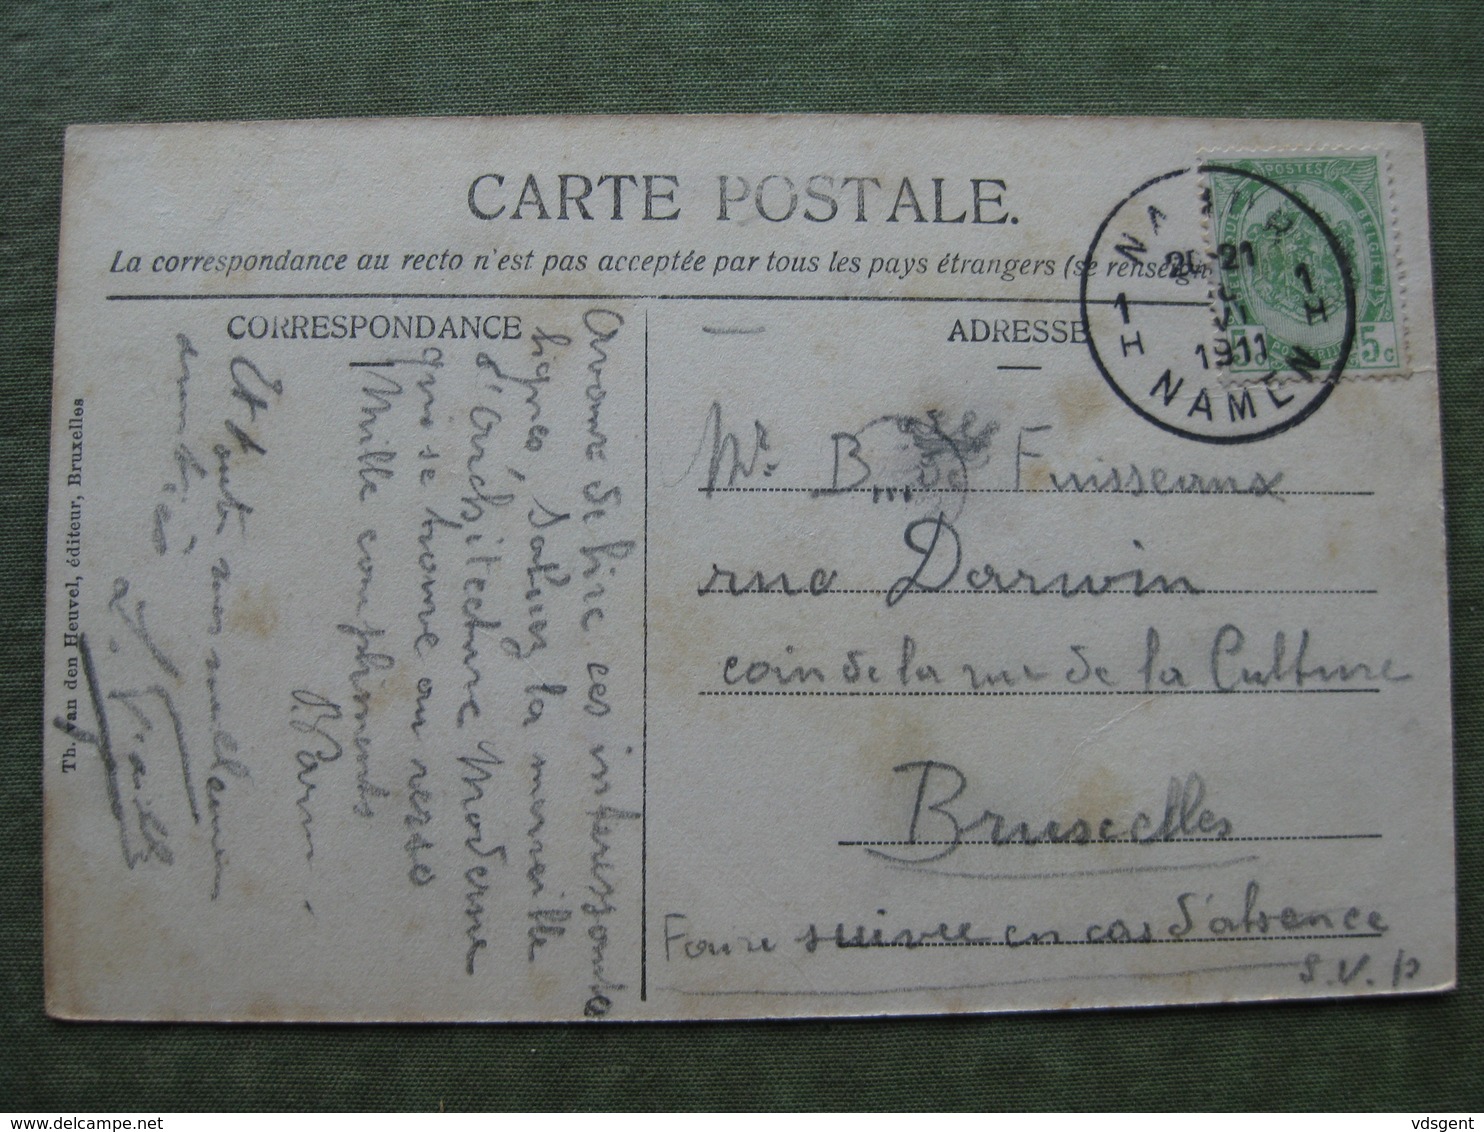 CARTE POSTALE.
La correspondance au recto n'est pas acceptée par tous les pays étrangers (se renseign
CORRESPONDANCE
ADRESSE
NAMUR
1 H
20-21
VI
1911
1 H
NAMEN
POSTES
5 5c
Avant de lire ces interessante
lignes, saluez la merveille
d'Architecture Moderne
qui se trouve au verso
Mille compliments
Et toute mes meilleures
amitiés
Th. van den Heuvel, éditeur, Bruxelles
Mr. B... de Fuisseaux
rue Darwin
coin de la rue de la Culture
Bruxelles
Faire suivre en cas d'absence
S.V.P
vdsgent
delcampe.net